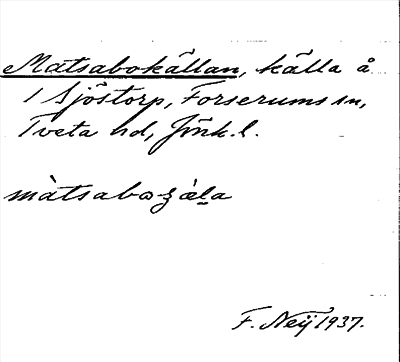 Matsabokällan, källa å
1 Sjöstorp, Forserums sn,
Tveta hd, Jönk.l.
F. Neij 1937.